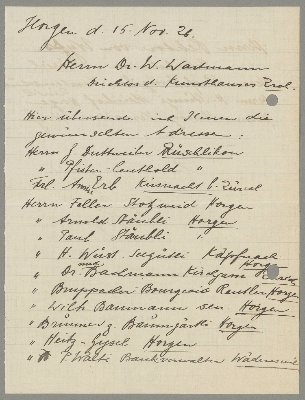 Horgen d. 15. Nov. 26.
Herrn Dr. W. Wartmann
Direktor d. Kunsthauses Zrch.
Hier übersende ich Ihnen die
gewünschten Adressen:
Herrn G. Duttweiler Rüschlikon
" Pfister-Leuthold "
Frl. Erb Küsnacht b. Zürich
Herrn Feller Horgen
" Arnold Stäubli Horgen
" Paul Stäubli "
" H. Wüst Käpfnach
Horgen
" Dr. Bachmann
" Bruppacher Bourgeois Rentier Horgen
" Wilh. Baumann sen. Horgen
" Brunner z. Baumgärtli Horgen
" Heitz-Gysel Horgen
" Bankverwalter Wädenswil